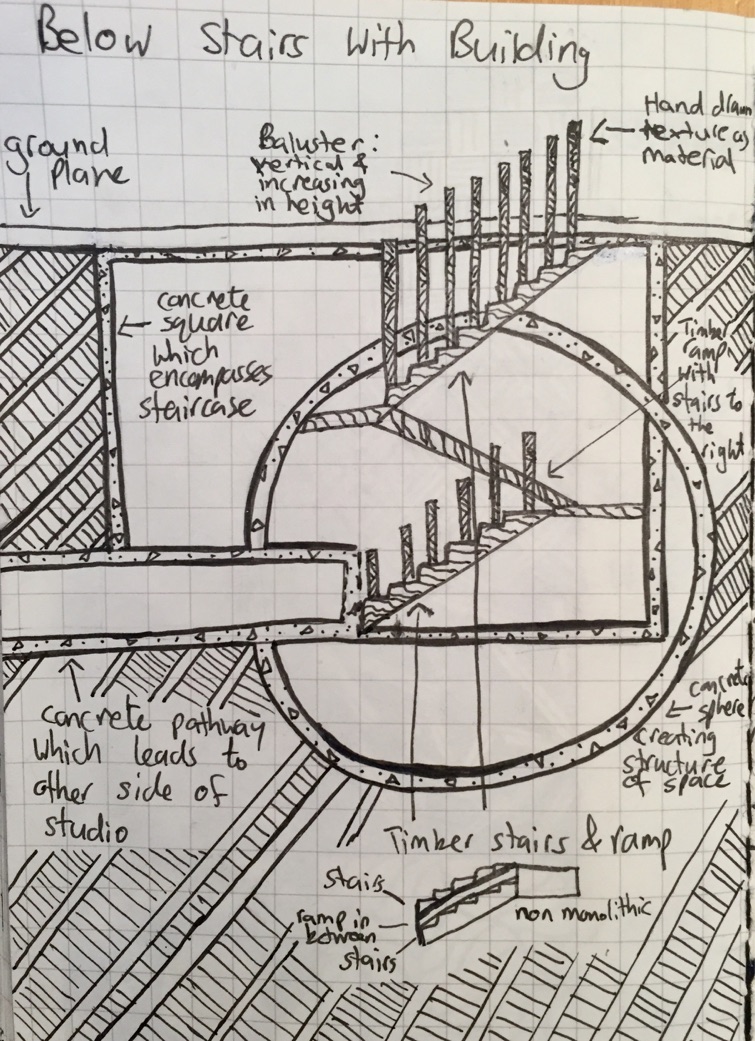 Below Stairs With Building
ground
plane
Baluster:
vertical &
increasing
in height
Hand drawn
texture as
material
concrete
square
which
encompasses
staircase
Timber
ramp
with
stairs to
the
right
concrete pathway
which leads to
other side of
studio
concrete
sphere
creating
structure
of space
Timber stairs & ramp
stairs
ramp in
between
stairs
non monolithic